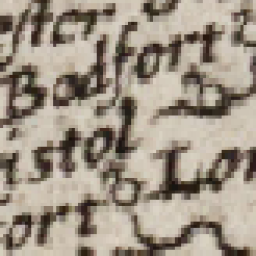 ester
Badfort
istol Lon
ort